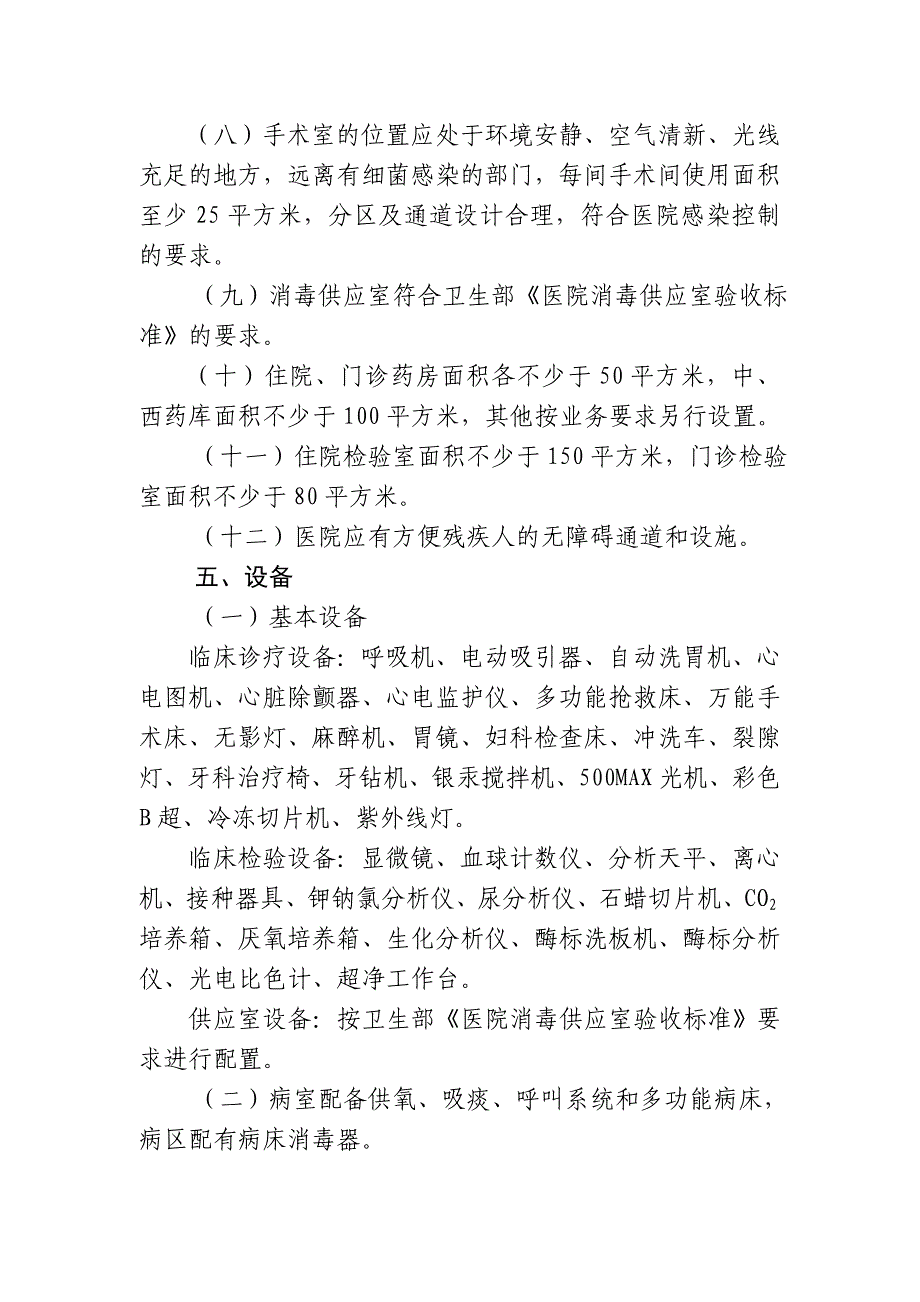 （八）手术室的位置应处于环境安静、空气清新、光线
充足的地方，远离有细菌感染的部门，每间手术间使用面积
至少 25 平方米，分区及通道设计合理，符合医院感染控制
的要求。
（九）消毒供应室符合卫生部《医院消毒供应室验收标
准》的要求。
（十）住院、门诊药房面积各不少于 50 平方米，中、
西药库面积不少于 100 平方米，其他按业务要求另行设置。
（十一）住院检验室面积不少于 150 平方米，门诊检验
室面积不少于 80 平方米。
（十二）医院应有方便残疾人的无障碍通道和设施。
五、设备
（一）基本设备
临床诊疗设备：呼吸机、电动吸引器、自动洗胃机、心
电图机、心脏除颤器、心电监护仪、多功能抢救床、万能手
术床、无影灯、麻醉机、胃镜、妇科检查床、冲洗车、裂隙
灯、牙科治疗椅、牙钻机、银汞搅拌机、500MAX 光机、彩色
B 超、冷冻切片机、紫外线灯。
临床检验设备：显微镜、血球计数仪、分析天平、离心
机、接种器具、钾钠氯分析仪、尿分析仪、石蜡切片机、CO₂
培养箱、厌氧培养箱、生化分析仪、酶标洗板机、酶标分析
仪、光电比色计、超净工作台。
供应室设备：按卫生部《医院消毒供应室验收标准》要
求进行配置。
（二）病室配备供氧、吸痰、呼叫系统和多功能病床，
病区配有病床消毒器。